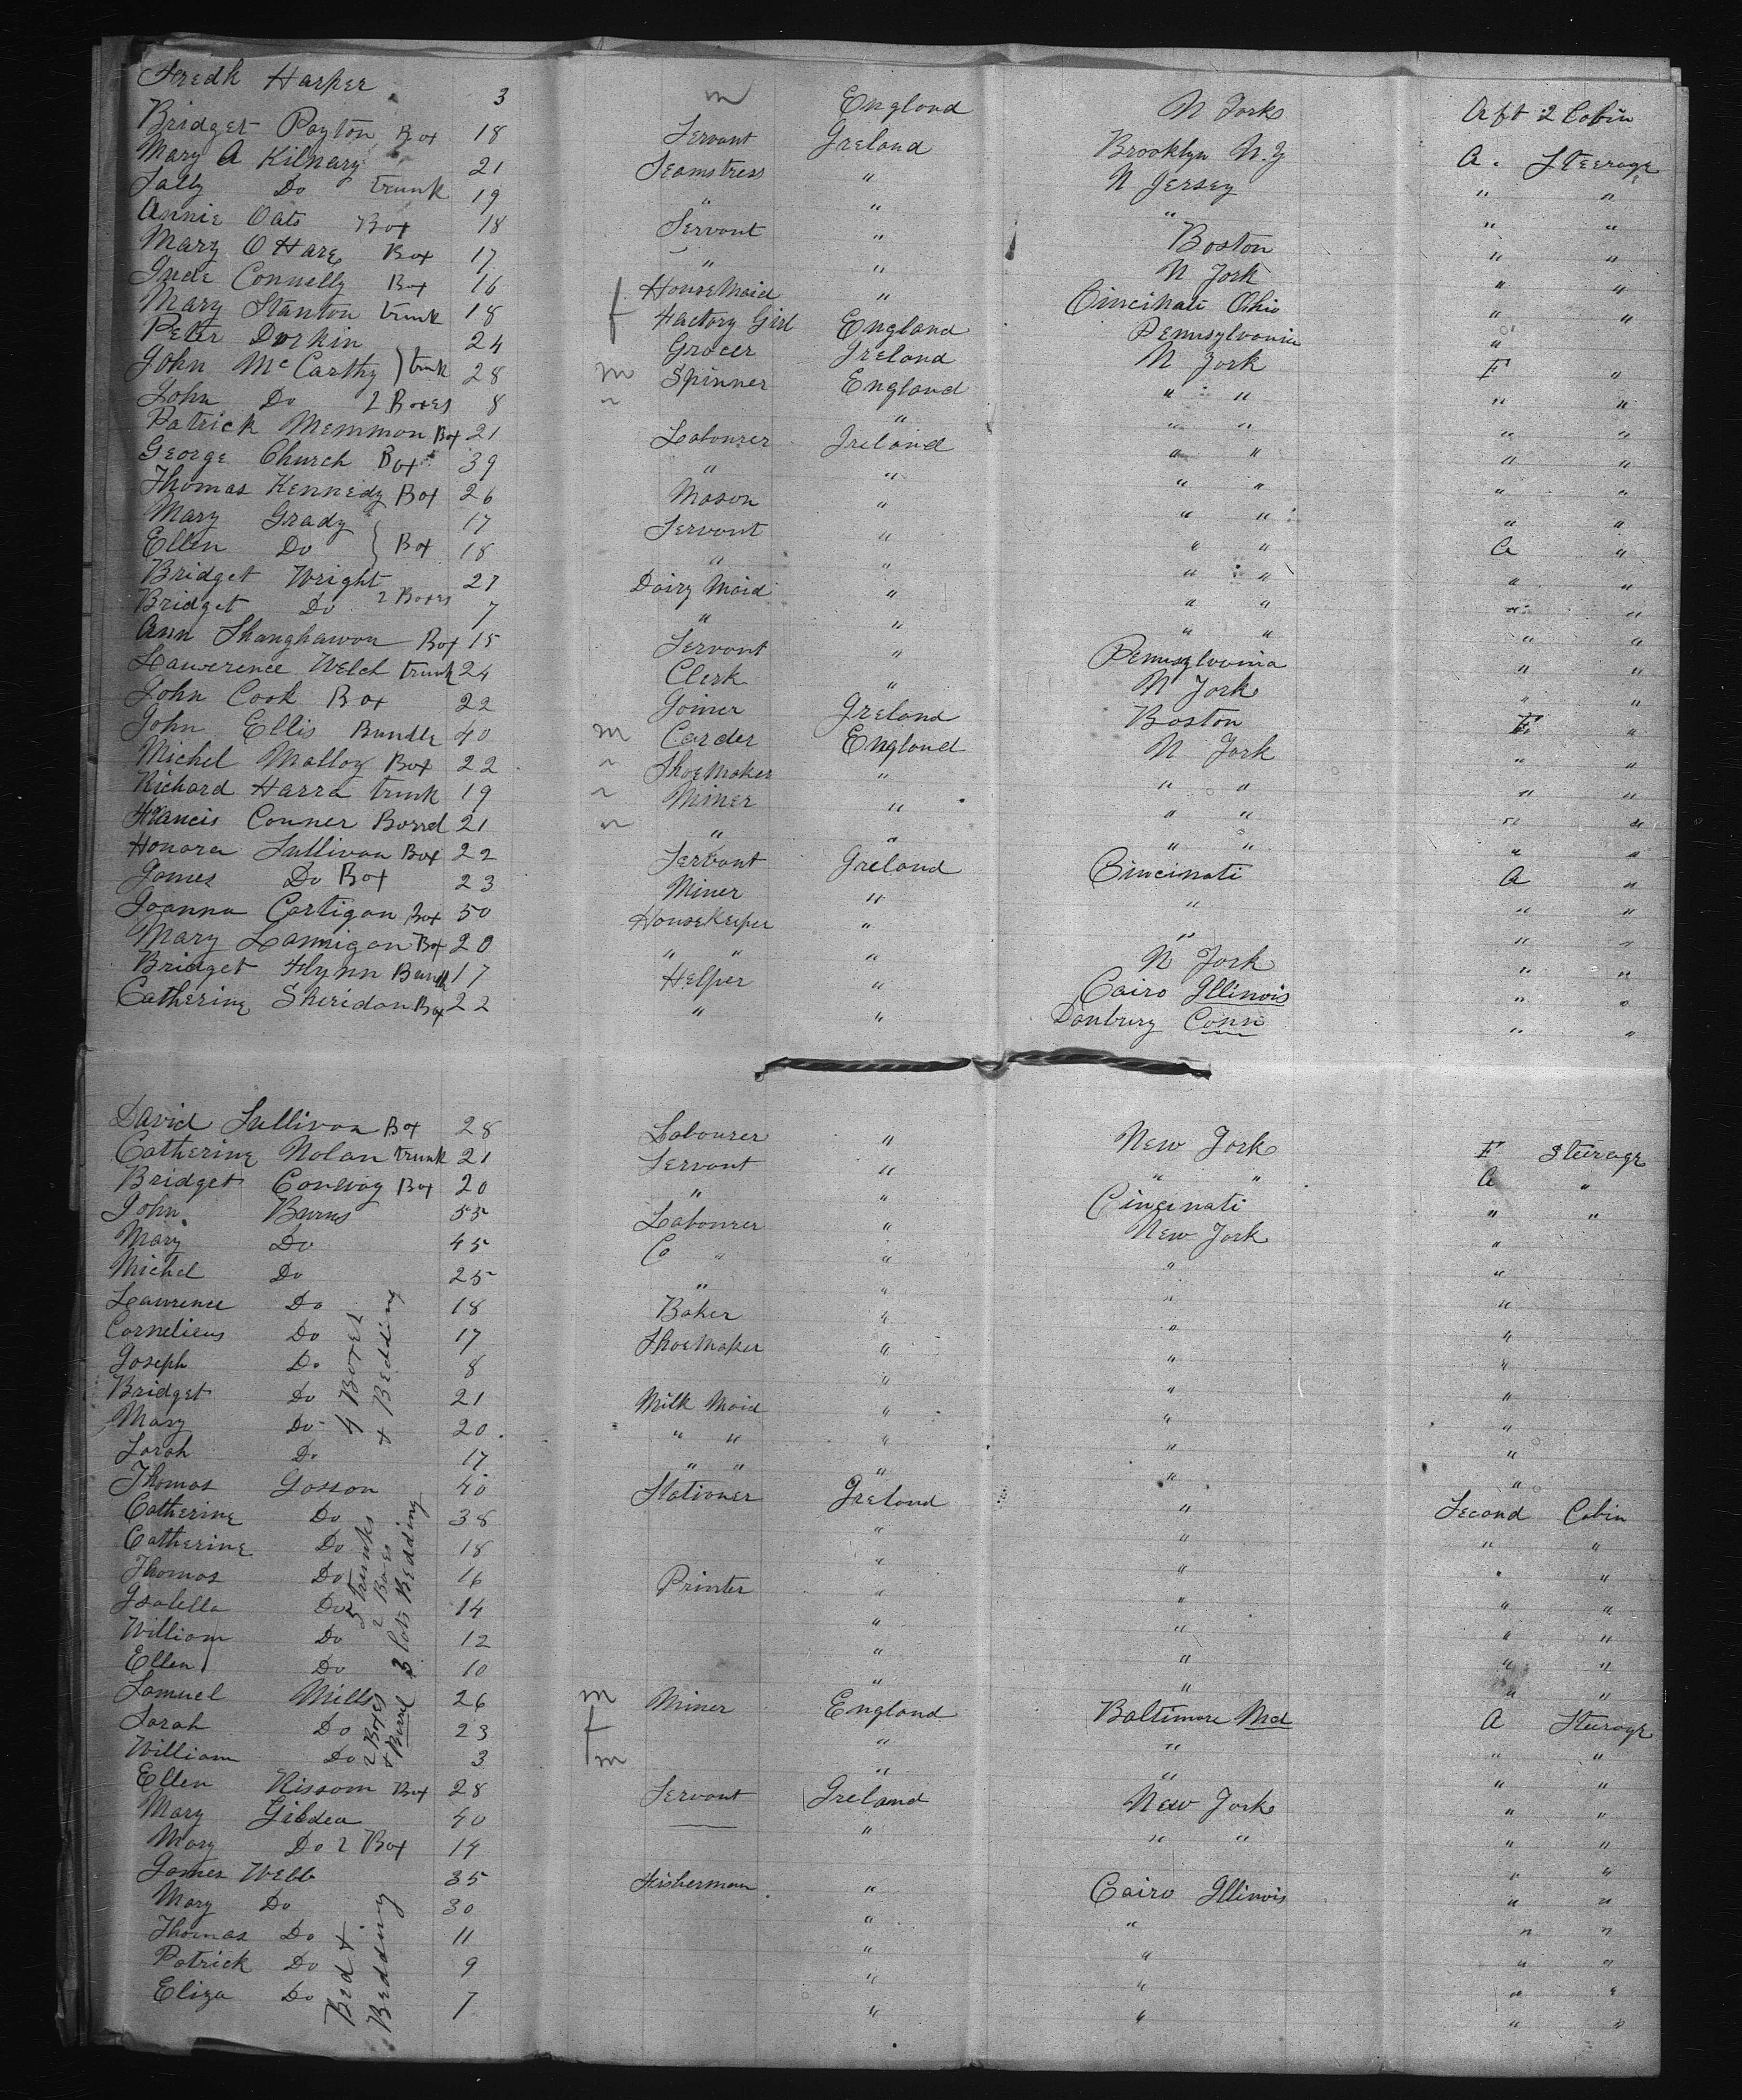 Fredk Harper 3 m England N York Aft 2 Cabin
Bridget Payton Box 18 Servant Ireland Brooklyn N.Y A. Steerage
Mary A Kilnary 21 Seamstress " N Jersey " "
Sally Do trunk 19 " " " " "
Annie Oats Box 18 Servant " Boston " "
Mary O Hare Box 17 " " N York " "
Connelly Box 16 House Maid " Cincinati Ohio " "
Mary Stanton trunk 18 f Factory Girl England Pennsylvania "
Peter Durkin 24 Grocer Ireland N York F "
John McCarthy trunk 28 m Spinner England " " " "
John Do 2 Boxes 8 " " " " " "
Patrick Memmon Box 21 Labourer Ireland " " " "
George Church Box 39 " " " " " "
Thomas Kennedy Box 26 Mason " " " " "
Mary Grady 17 Servant " " " A "
Ellen Do Box 18 " " " " " "
Bridget Wright 27 Dairy Maid " " " " "
Bridget Do 2 Boxes 7 " " " " " "
Ann Shanghawon Box 15 Servant " Pennsylvania " "
Lawerence Welch trunk 24 Clerk " N York " "
John Cook Box 22 Joiner Ireland Boston F "
John Ellis Bundle 40 m Carder England N York " "
Michel Malloy Box 22 " Shoe Maker " " " " "
Richard Harra trunk 19 " Miner " " " " "
Francis Conner Barrel 21 " " " " " " "
Honora Sullivan Box 22 Servant Ireland Cincinati A "
James Do Box 23 Miner " " " "
Joanna Cartigan Box 50 House Keeper " " " "
Mary Lannigan Box 20 " " " N York " "
Bridget Flynn Bundle 17 Helper " Cairo Illinois " "
Catherine Sheridan Box 22 " " Danbury Conn " "
David Sullivan Box 28 Labourer " New York F Steerage
Catherine Nolan trunk 21 Servant " " " A "
Bridget Conway Box 20 " " Cincinati " "
John Burns 55 Labourer " New York "
Mary Do 45 " " " "
Michel Do 25 " " " "
Lawrence Do 18 Baker " " "
Cornelieus Do 17 Shoe Maker " " "
Joseph Do 8 " " "
Bridget Do 21 Milk Maid " " "
Mary Do 20 " " " " "
Sarah Do 17 " " " " "
4 Boxes + Bedding
Thomas Gosson 40 Stationer Ireland " Second Cabin
Catherine Do 38 " " " "
Catherine Do 18 " " " "
Thomas Do 16 Printer " " " "
Isabella Do 14 " " " "
William Do 12 " " " "
Ellen Do 10 " " " "
5 trunks 2 Boxes 3 lots Bedding
Samuel Mills 26 m Miner England Baltimore Md A Steerage
Sarah Do 23 f " " " "
William Do 3 m " " " "
2 Boxes + Barrel
Ellen Nissom Box 28 Servant Ireland New York " "
Mary Gibdea 40 — " " " " "
Mary Do 2 Box 14 " "
James Webb 35 Fisherman " Cairo Illinois " "
Mary Do 30 " " " "
Thomas Do 11 " " " "
Patrick Do 9 " " " "
Eliza Do 7 " " " "
Bed + Bedding